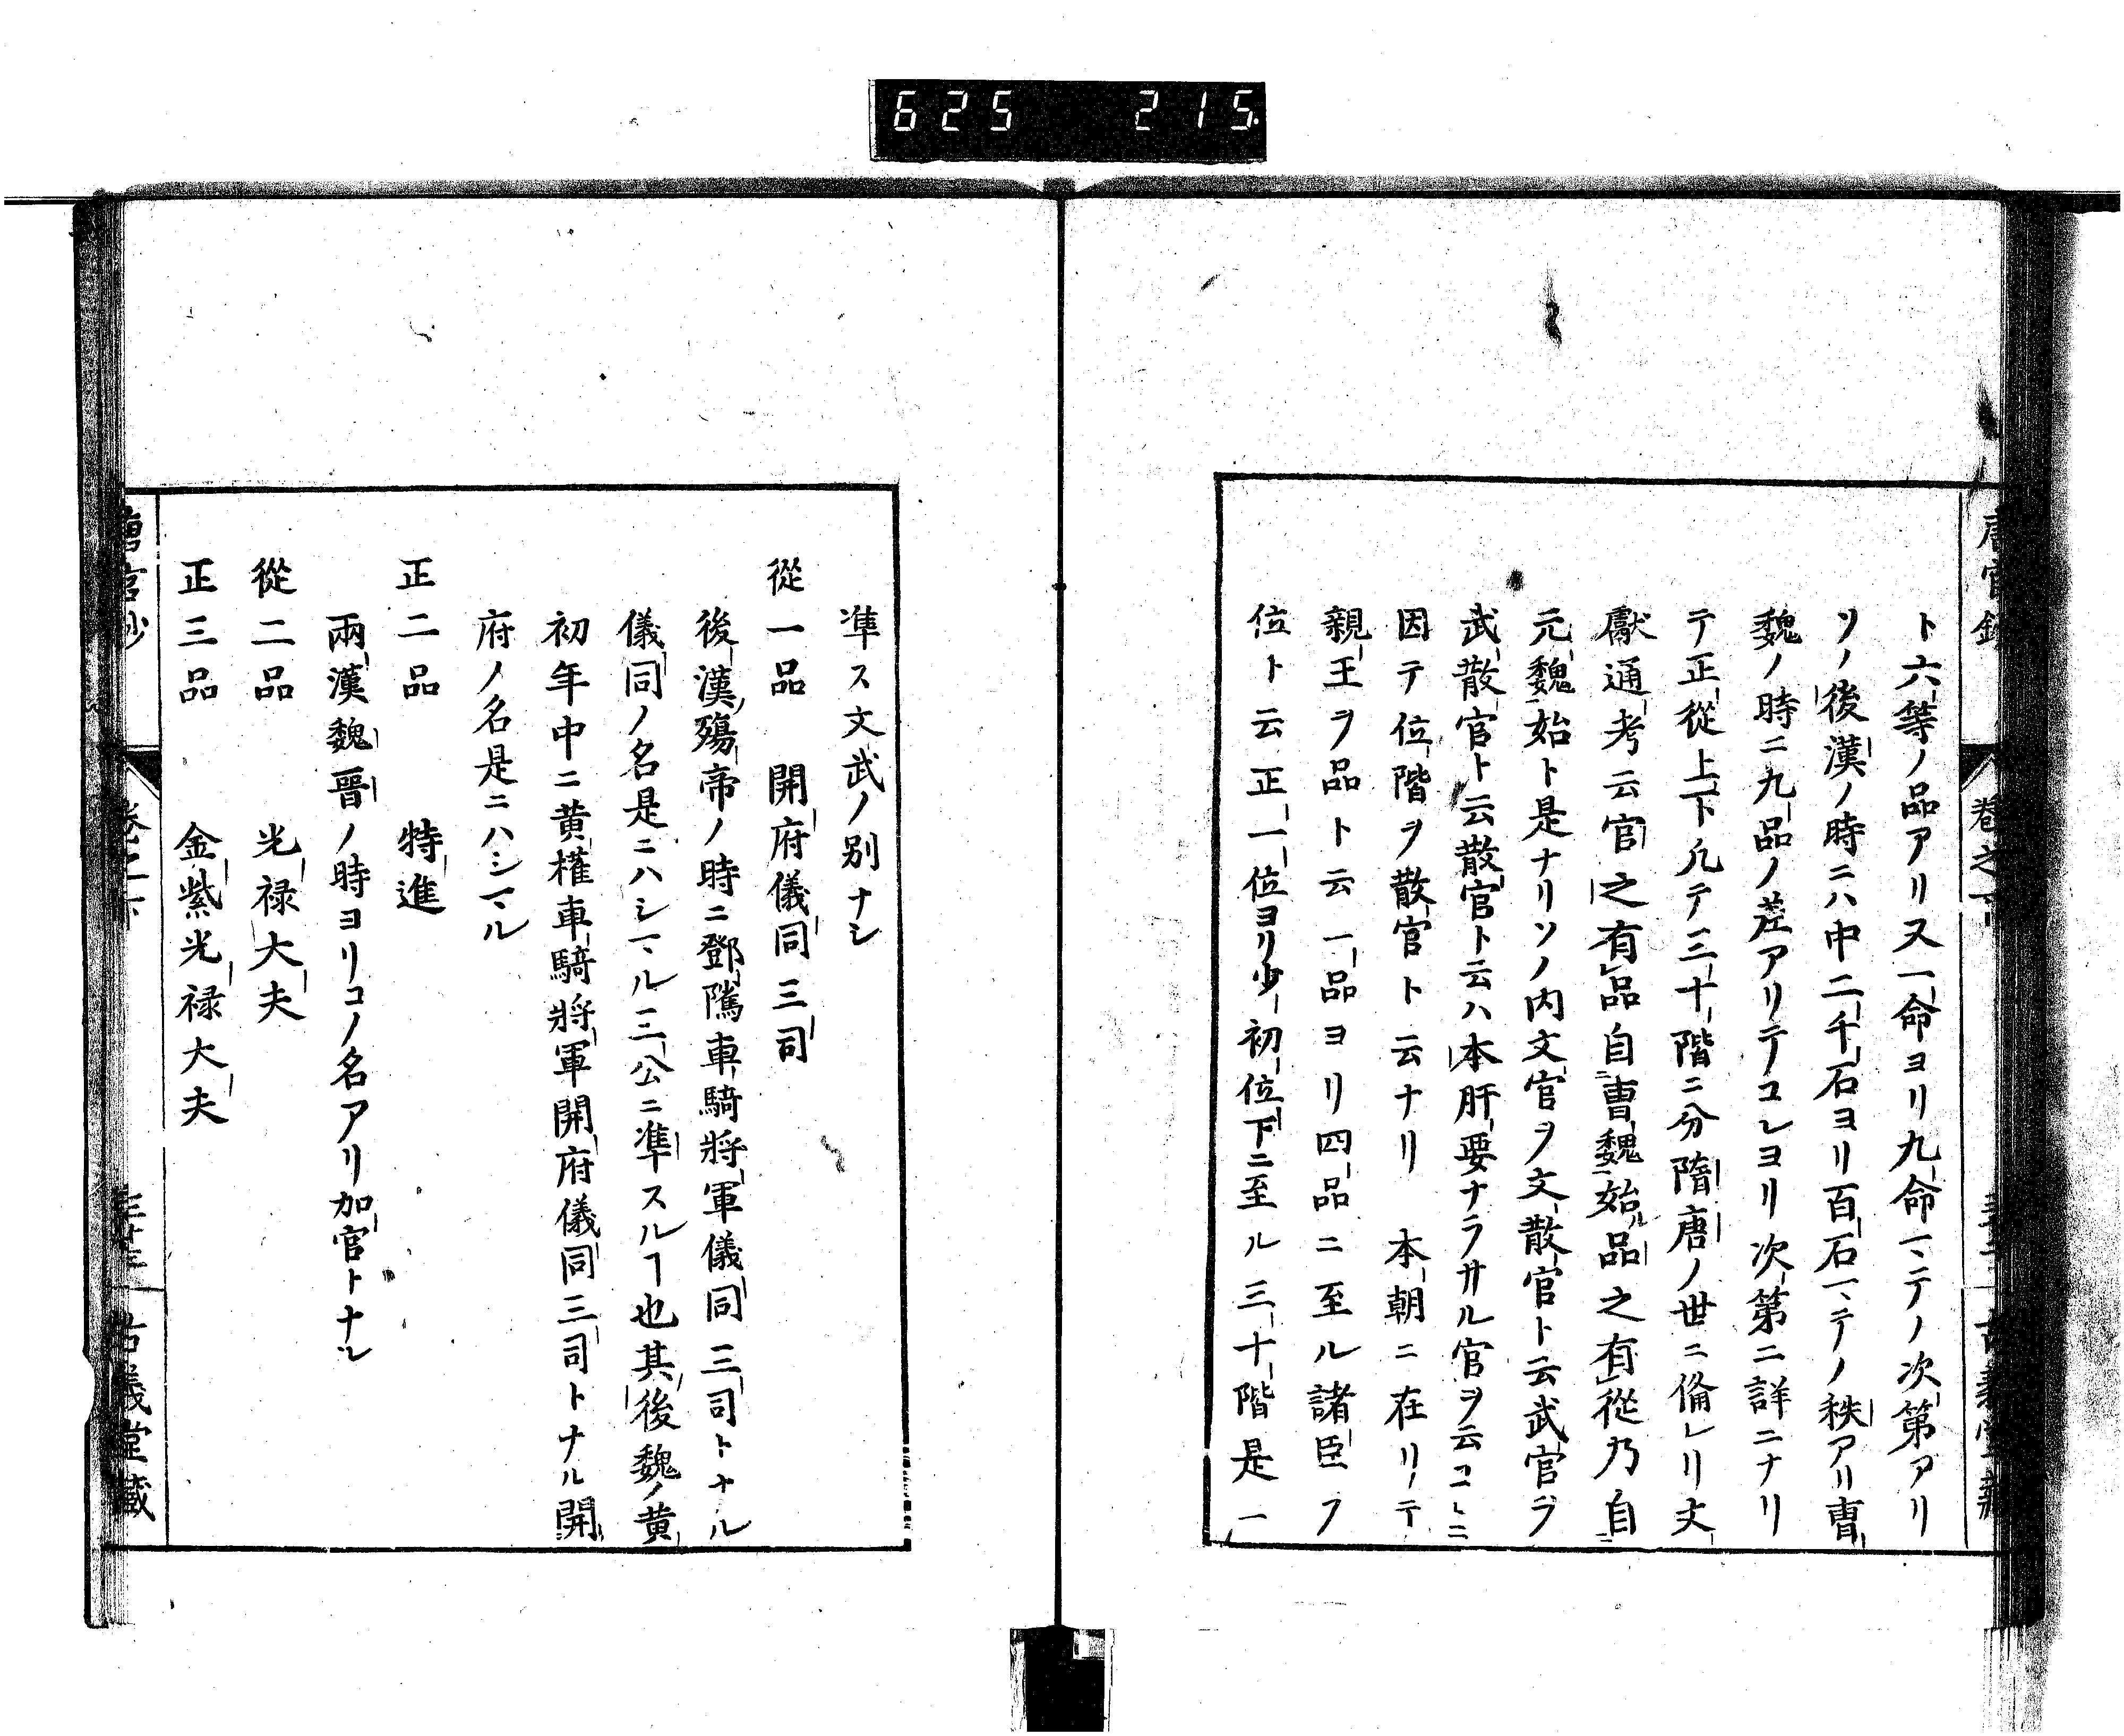 625 215
卷之下
ト六等ノ品アリ又一命ヨリ九命マテノ次第アリ
ソノ後漢ノ時ニハ中二千石ヨリ百石マテノ秩アリ曹
魏ノ時ニ九品ノ差アリテコレヨリ次第ニ詳ニナリ
テ正從上下凡テ三十階ニ分隋唐ノ世ニ俻レリ文
獻通考云官之有品自曹魏始ル品之有從乃自
元魏始ト是ナリソノ内文官ヲ文散官ト云武官ヲ
武散官ト云散官ト云ハ本肝要ナラサル官ヲ云コヽニ
因テ位階ヲ散官ト云ナリ 本朝ニ在リテ
親王ヲ品ト云一品ヨリ四品ニ至ル諸臣ヲ
位ト云正一位ヨリ少初位下ニ至ル三十階是ニ
凖ス文武ノ別ナシ
從一品 開府儀同三司
後漢ノ殤帝ノ時ニ鄧隲車騎將軍儀同三司トナル
儀同ノ名是ニハシマル三公ニ凖スルヿ也其後魏ノ黄
初年中ニ黄權車騎將軍開府儀同三司トナル開
府ノ名是ニハシマル
正二品 特進
兩漢魏晋ノ時ヨリコノ名アリ加官トナル
從二品 光禄大夫
正三品 金紫光禄大夫
唐官鈔 卷之下 古義堂藏